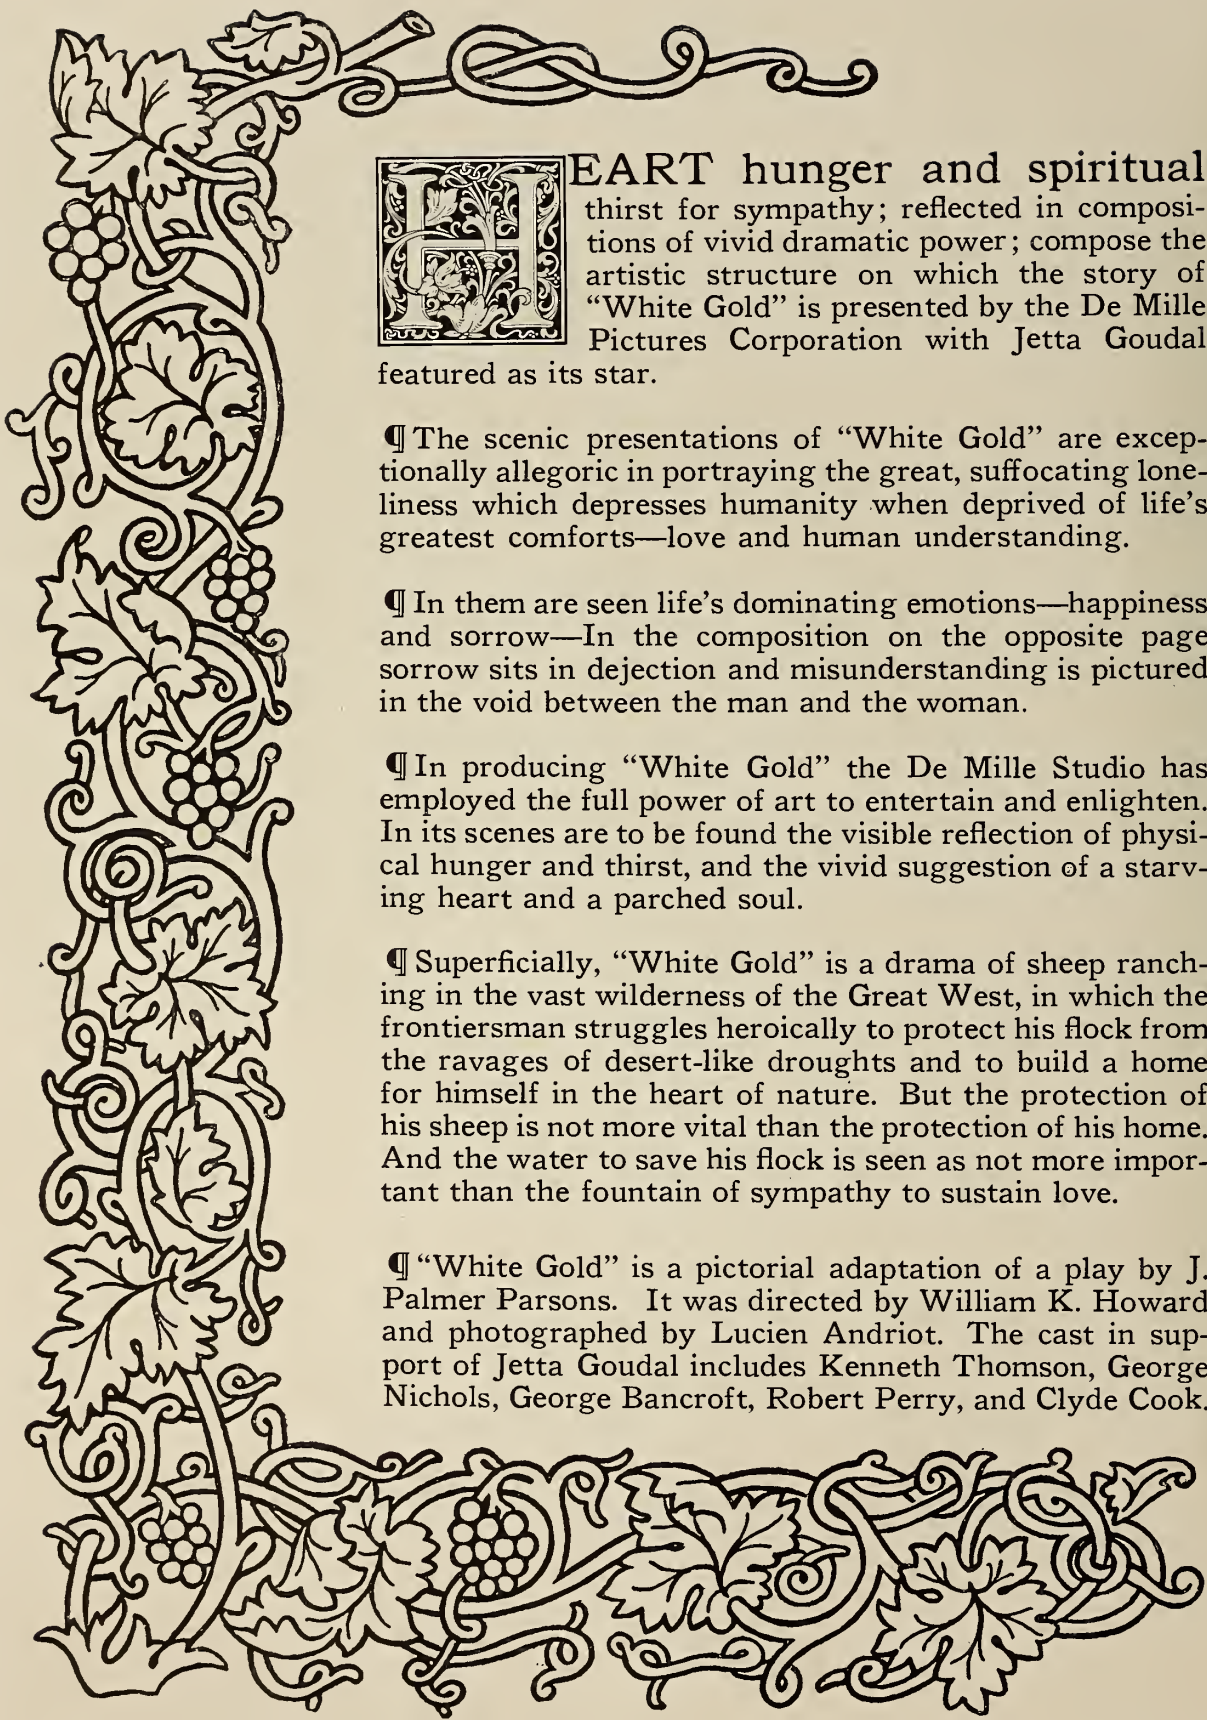 HEART hunger and spiritual
thirst for sympathy; reflected in composi-
tions of vivid dramatic power; compose the
artistic structure on which the story of
“White Gold” is presented by the De Mille
Pictures Corporation with Jetta Goudal
featured as its star.
¶ The scenic presentations of “White Gold” are excep-
tionally allegoric in portraying the great, suffocating lone-
liness which depresses humanity when deprived of life’s
greatest comforts—love and human understanding.
¶ In them are seen life’s dominating emotions—happiness
and sorrow—In the composition on the opposite page
sorrow sits in dejection and misunderstanding is pictured
in the void between the man and the woman.
¶ In producing “White Gold” the De Mille Studio has
employed the full power of art to entertain and enlighten.
In its scenes are to be found the visible reflection of physi-
cal hunger and thirst, and the vivid suggestion of a starv-
ing heart and a parched soul.
¶ Superficially, “White Gold” is a drama of sheep ranch-
ing in the vast wilderness of the Great West, in which the
frontiersman struggles heroically to protect his flock from
the ravages of desert-like droughts and to build a home
for himself in the heart of nature. But the protection of
his sheep is not more vital than the protection of his home.
And the water to save his flock is seen as not more impor-
tant than the fountain of sympathy to sustain love.
¶ “White Gold” is a pictorial adaptation of a play by J.
Palmer Parsons. It was directed by William K. Howard
and photographed by Lucien Andriot. The cast in sup-
port of Jetta Goudal includes Kenneth Thomson, George
Nichols, George Bancroft, Robert Perry, and Clyde Cook.